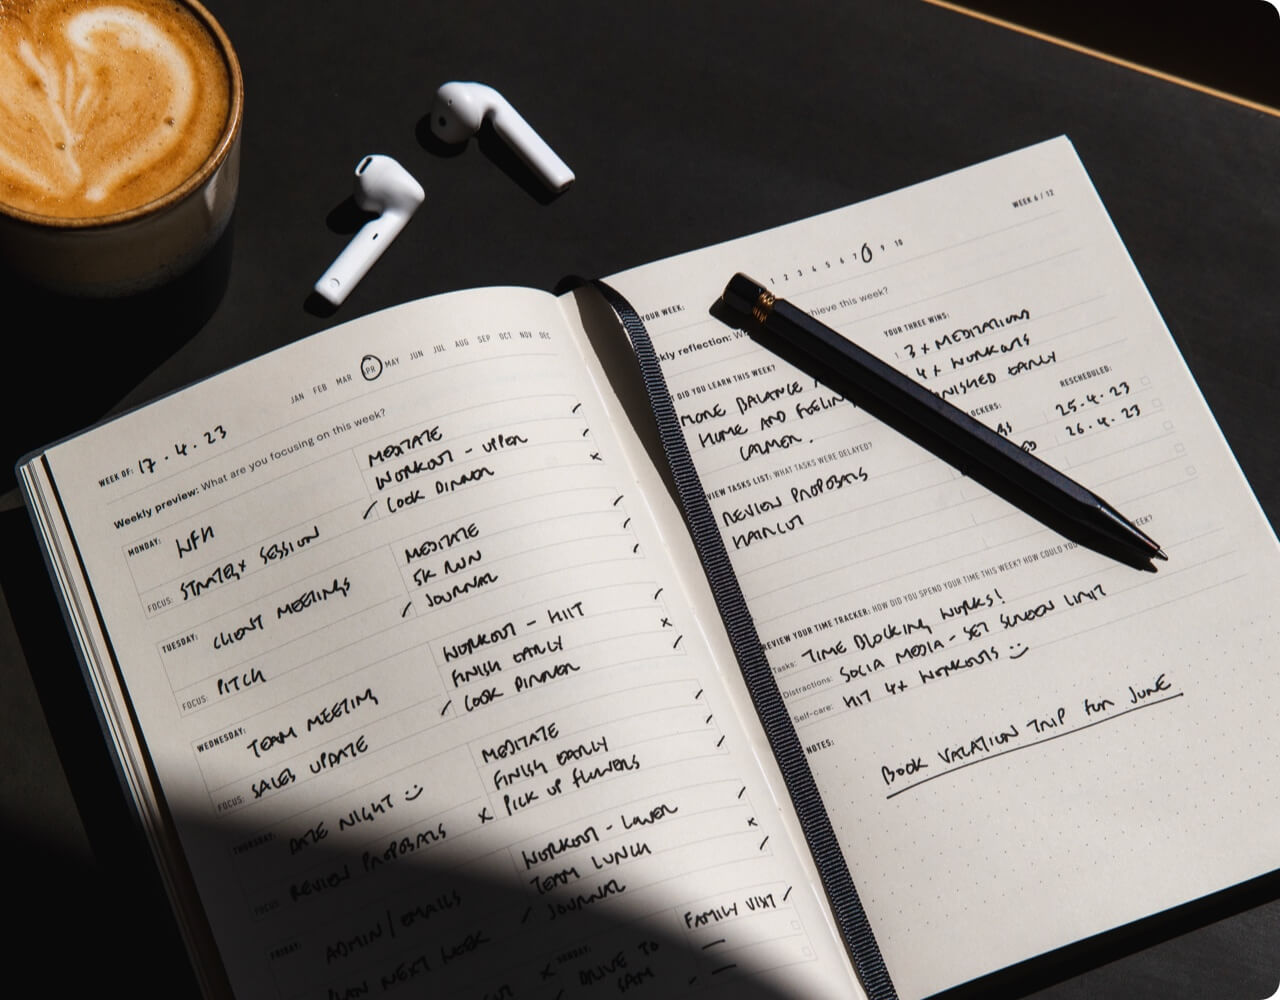 JAN FEB MAR PR MAY JUN JUL AUG SEP OCT NOV DEC
WEEK OF: 17.4.23
Weekly preview: What are you focusing on this week?
MONDAY: WFH
FOCUS: STRATEGY SESSION
MEDITATE
WORKOUT - UPPER
COOK DINNER
TUESDAY: CLIENT MEETINGS
FOCUS: PITCH
MEDITATE
5K RUN
JOURNAL
WEDNESDAY: TEAM MEETING
FOCUS: SALES UPDATE
WORKOUT - HIIT
FINISH EARLY
COOK DINNER
THURSDAY: DATE NIGHT
FOCUS: REVIEW PROPOSALS
MEDITATE
FINISH EARLY
PICK UP FLOWERS
FRIDAY: ADMIN/EMAILS
PLAN NEXT WEEK
WORKOUT - LOWER
TEAM LUNCH
JOURNAL
SUNDAY:
DRIVE TO
SAM
FAMILY VISIT
WEEK 6 / 12
1 2 3 4 5 6 7 9 10
YOUR WEEK:
kly reflection: hieve this week?
DID YOU LEARN THIS WEEK?
MORE BALANCE
HOME AND FEELIN
CALMER.
YOUR THREE WINS:
3 x MEDITATIONS
4 x WORKOUTS
NISHED EARLY
VIEW TASKS LIST: WHAT TASKS WERE DELAYED?
REVIEW PROPOSALS
HAIRCUT
LOCKERS:
RESCHEDULED:
25.4.23
26.4.23
REVIEW YOUR TIME TRACKER: HOW DID YOU SPEND YOUR TIME THIS WEEK? HOW COULD YOU WEEK?
Tasks: TIME BLOCKING WORKS!
Distractions: SOCIAL MEDIA - SET SCREEN LIMIT
Self-care: HIT 4x WORKOUTS
NOTES:
BOOK VACATION TRIP FOR JUNE